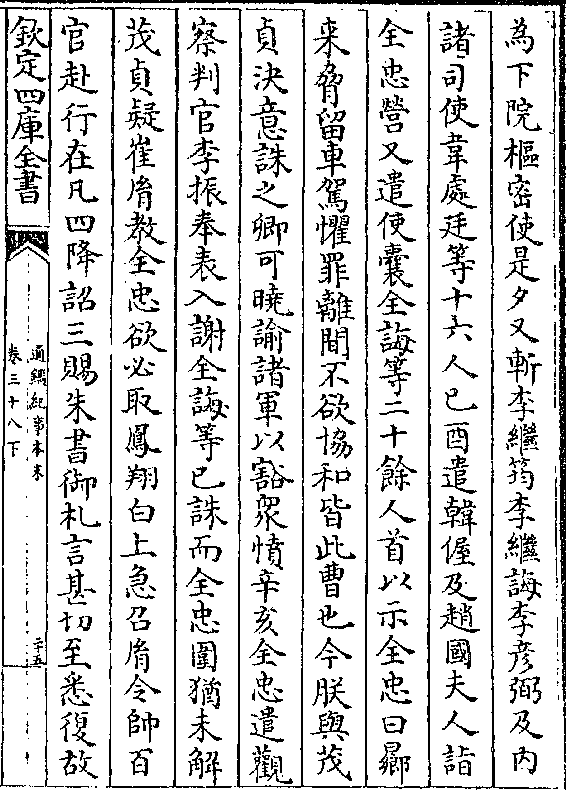 為下院樞密使是夕又斬李繼筠李繼誨李彦弼及内
諸司使韋處廷等十六人已酉遣韓偓及趙國夫人詣
全忠營又遣使囊全誨等二十餘人首以示全忠曰曏
来脅留車駕懼罪離間不欲協和皆此曹也今朕與茂
貞決意誅之卿可曉諭諸軍以豁衆憤辛亥全忠遣觀
察判官李振奉表入謝全誨等已誅而全忠圍猶未解
茂貞疑崔𦙍教全忠欲必取鳳翔白上急召𦙍令帥百
官赴行在凡四降詔三賜朱書御札言甚切至悉復故
欽定四庫全書
通鑑紀事本末
卷三十八下
二十五